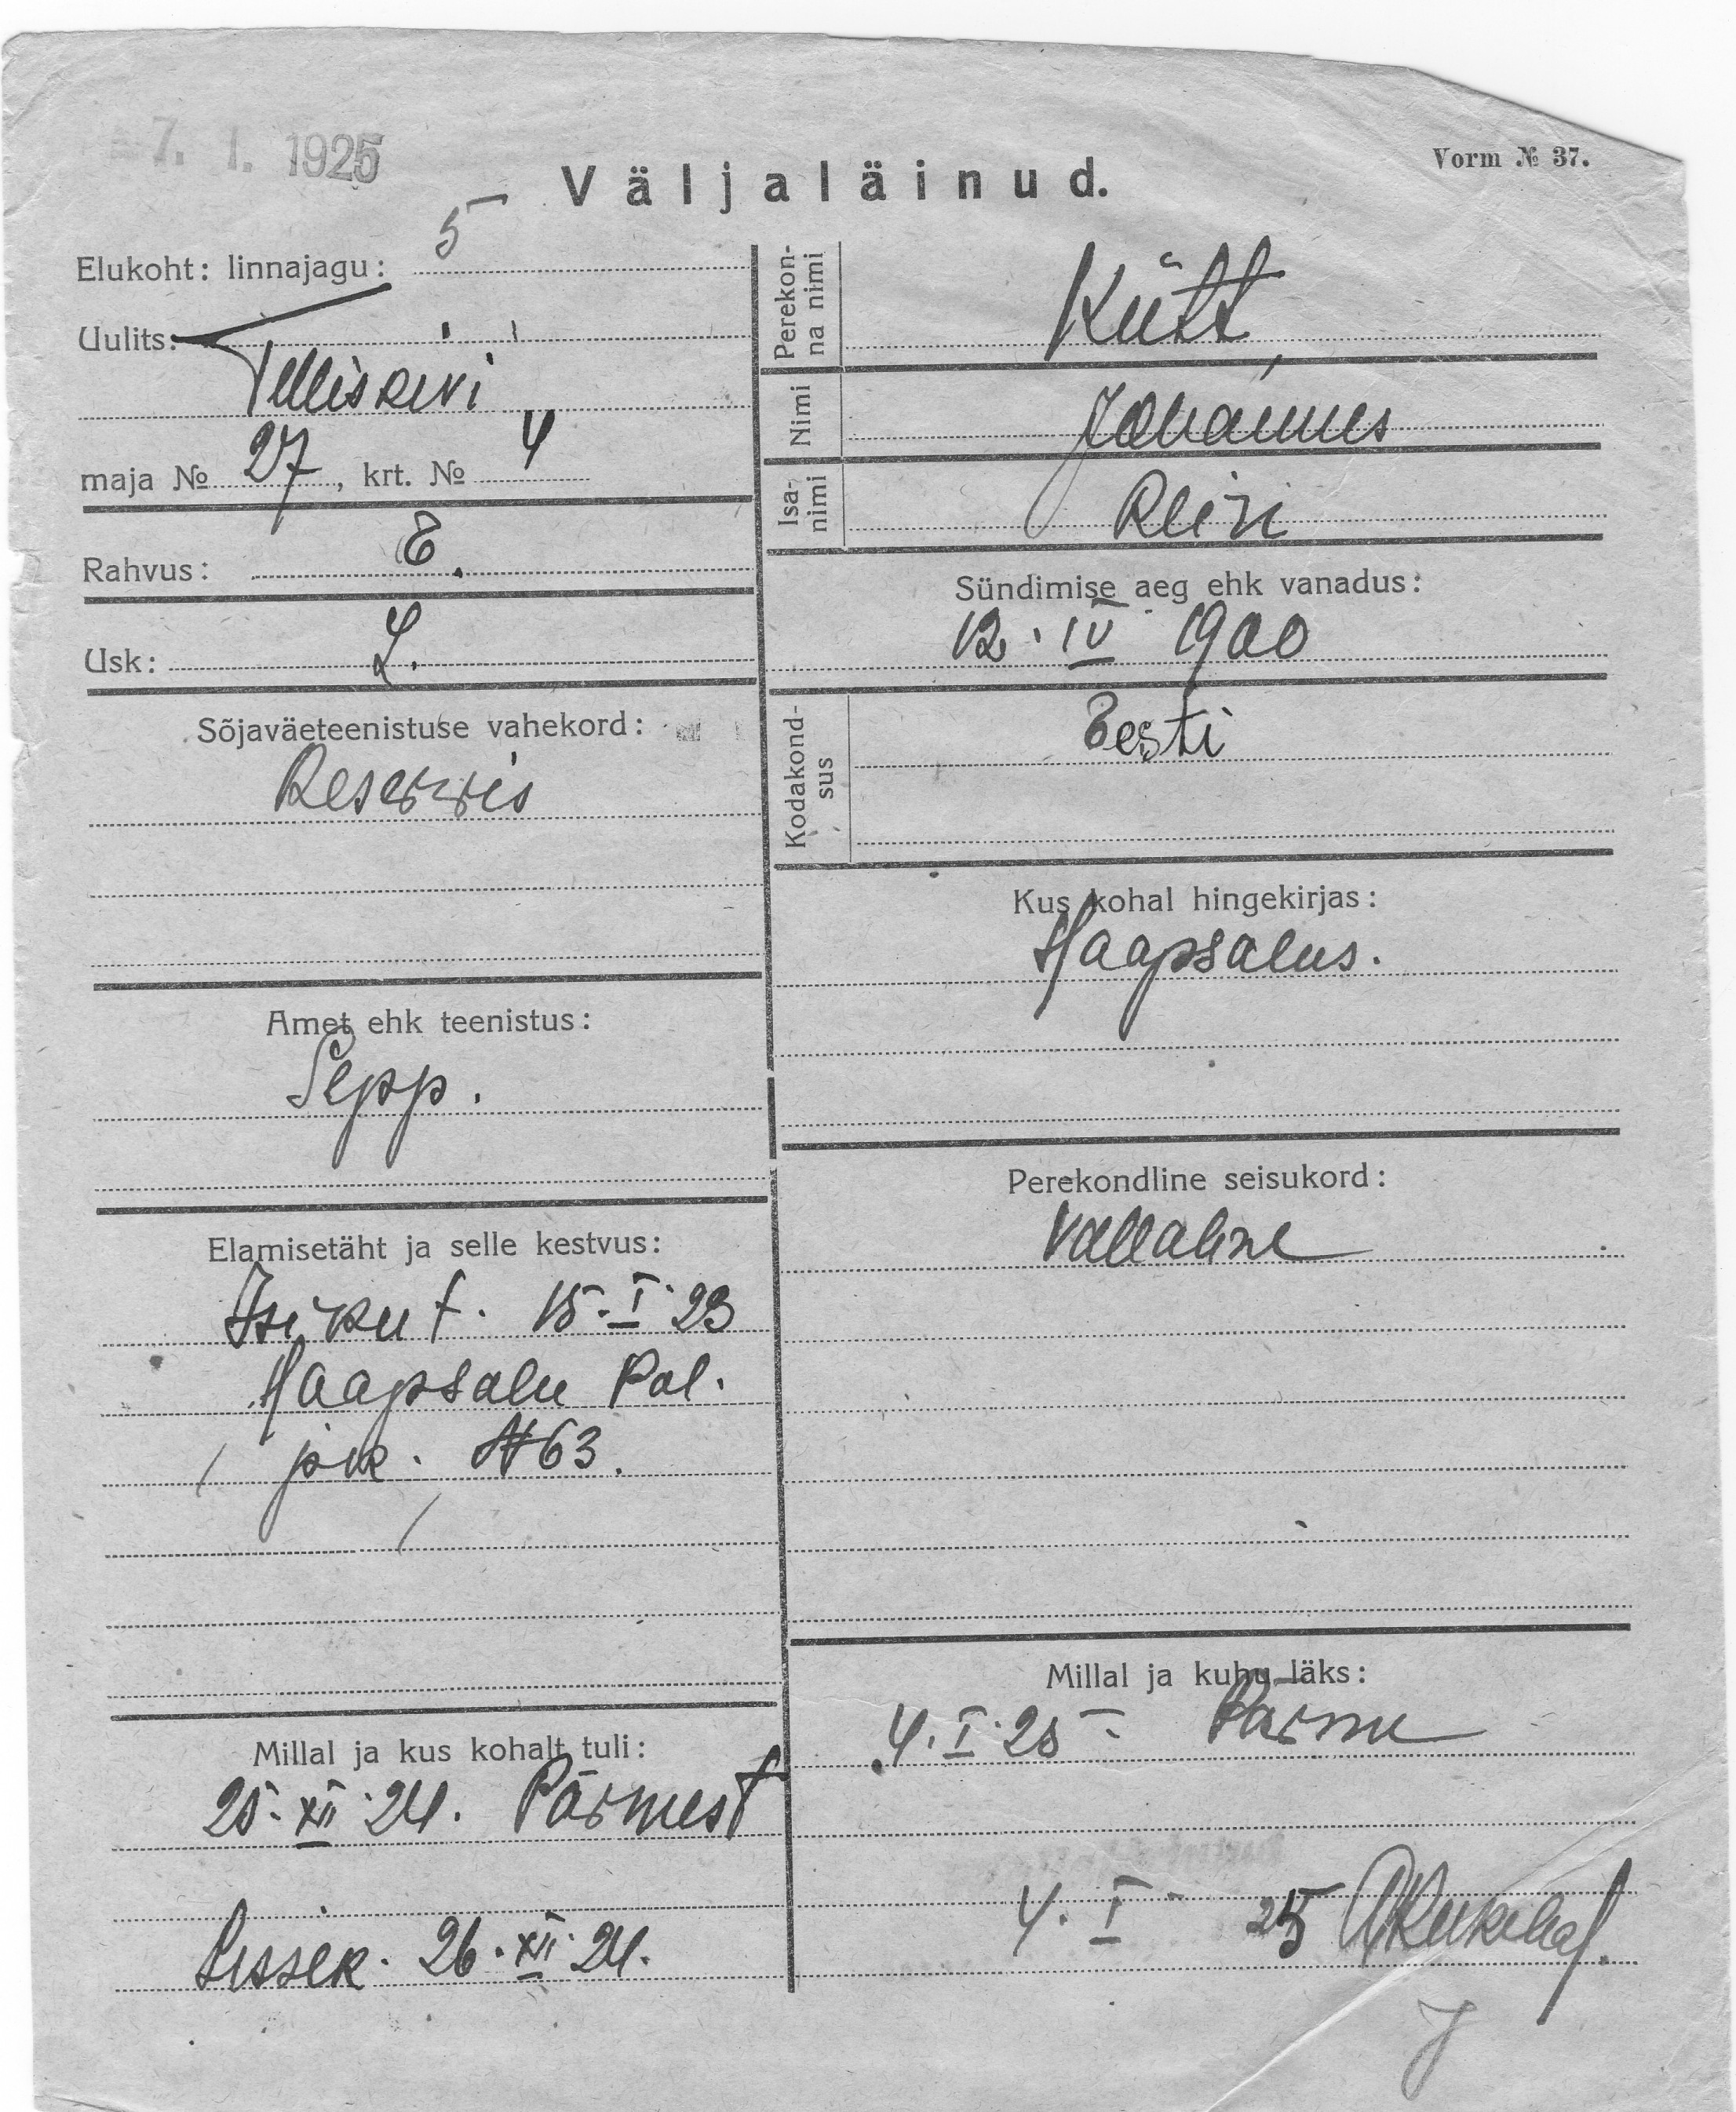 7. I. 1925
Vorm № 37.
Väljaläinud.
Elukoht: linnajagu: 5
Uulits: Telliskivi
maja № 27, krt. № 4
Rahvus: E.
Usk: L.
Sõjaväeteenistuse vahekord:
Reservis
Amet ehk teenistus:
Sepp.
Elamisetäht ja selle kestvus:
Isiku t. 15. I 23
Haapsalu Pol.
jsk. № 63.
Millal ja kus kohalt tuli:
25. XII 24. Pärnust
Sissek. 26. XII 24.
Perekon-
na nimi
Kütt,
Nimi
Johannes
Isa-
nimi
Sündimise aeg ehk vanadus:
12. IV 1900
Kodakond-
sus
Eesti
Kus kohal hingekirjas:
Haapsalus.
Perekondline seisukord:
Vallaline
Millal ja kuhu läks:
4. I 25 Pärnu
4. I 25